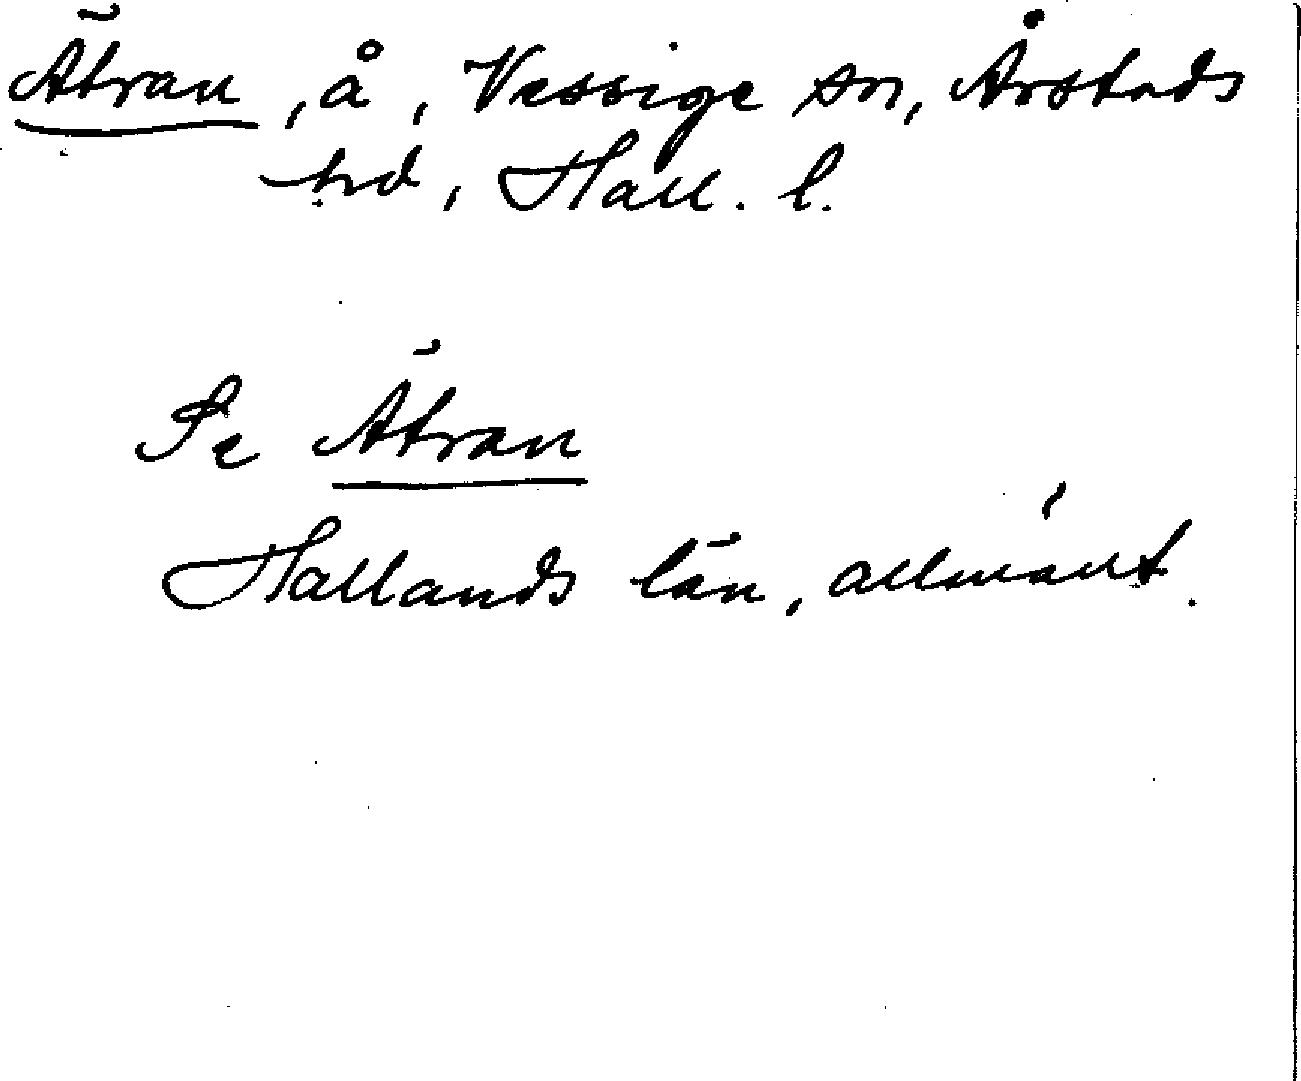 Ätran, å, Vessige sn, Årstads
hd, Hall. l.
Se Ätran
Hallands län, allmänt.